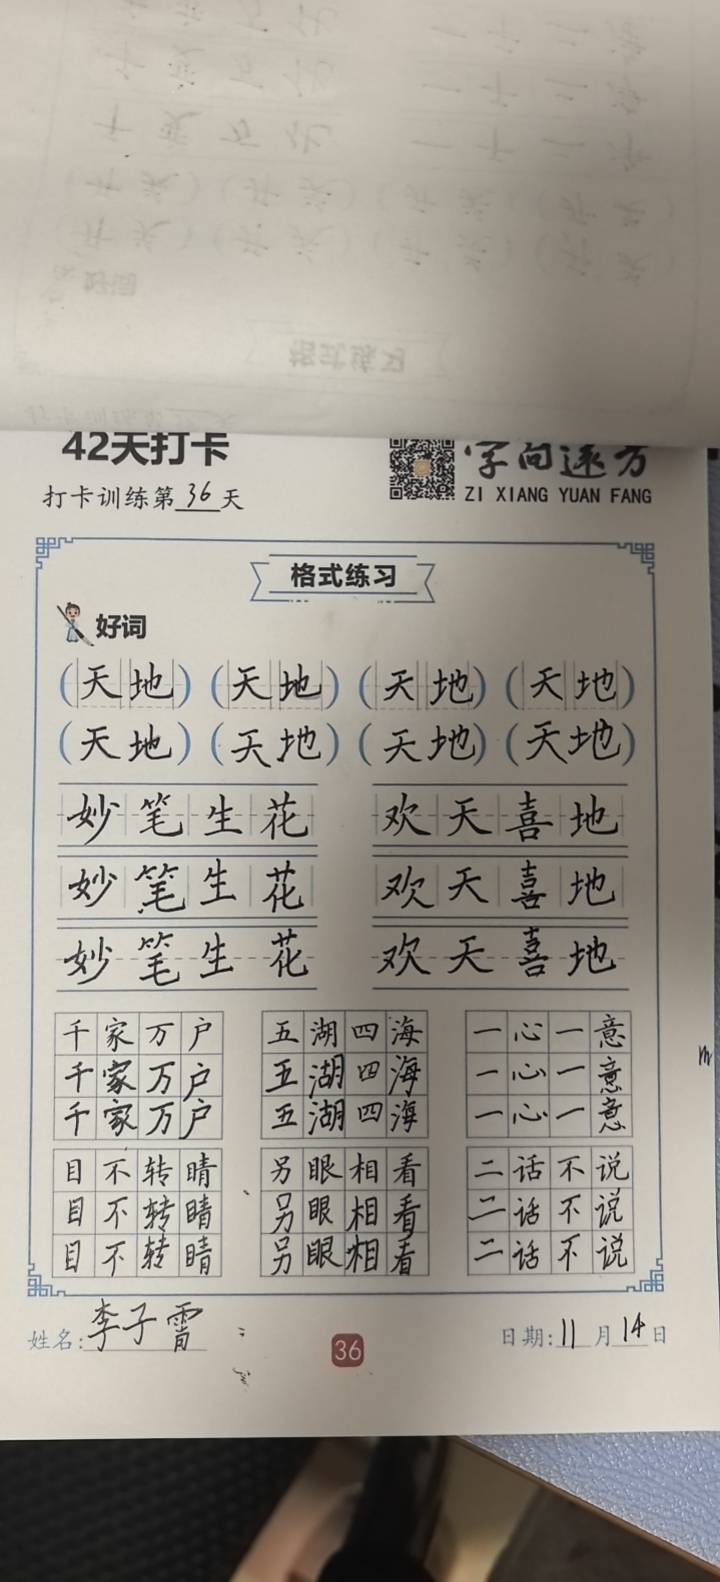 42天打卡 字向远方
打卡训练第36天 ZI XIANG YUAN FANG
格式练习
好词
(天地) (天地) (天地) (天地)
(天地) (天地) (天地) (天地)
妙笔生花 欢天喜地
妙笔生花 欢天喜地
妙笔生花 欢天喜地
千家万户 五湖四海 一心一意
千家万户 五湖四海 一心一意
千家万户 五湖四海 一心一意
目不转睛 另眼相看 二话不说
目不转睛 另眼相看 二话不说
目不转睛 另眼相看 二话不说
姓名:李子霄 36 日期:11月14日